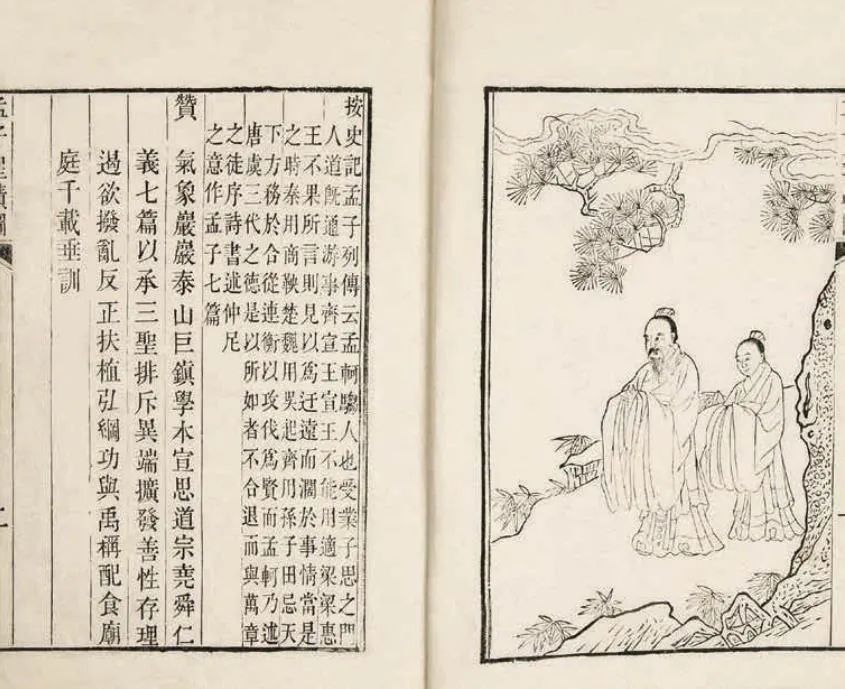 按史記孟子列傳云孟軻騶人也受業子思之門
人道旣通游事齊宣王宣王不能用適梁梁惠
王不果所言則見以爲迂遠而濶於事情當是
之時秦用商鞅楚魏用吳起齊用孫子田忌天
下方務於合從連衡以攻伐爲賢而孟軻乃述
唐虞三代之德是以所如者不合退而與萬章
之徒序詩書述仲尼
之意作孟子七篇
贊 氣象巖巖泰山巨鎭學本宣思道宗堯舜仁
義七篇以承三聖排斥異端擴發善性存理
遏欲撥亂反正扶植弘綱功與禹稱配食廟
庭千載垂訓
孟子聖蹟圖